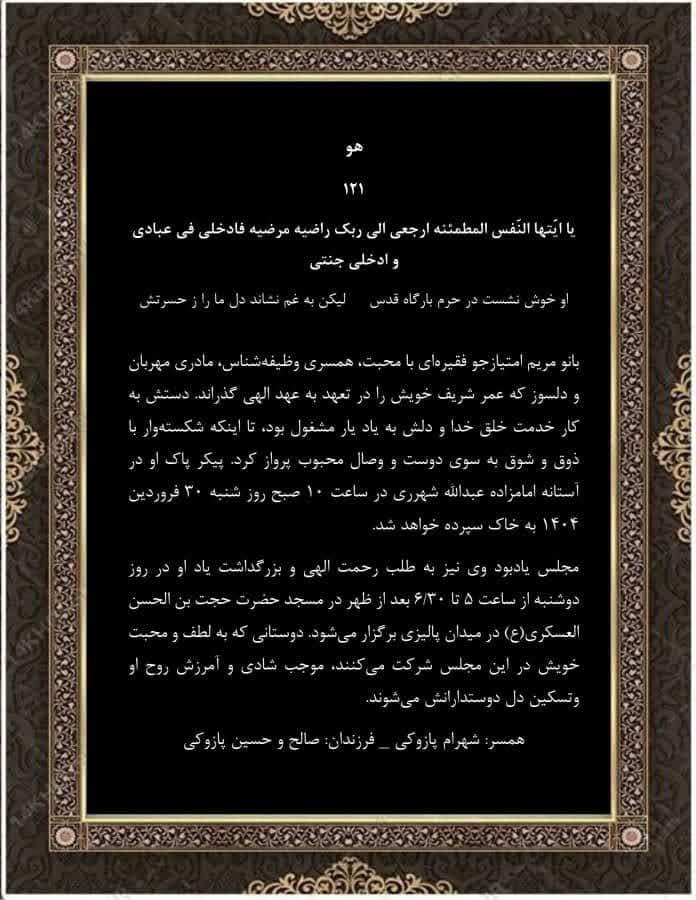 هو
۱۲۱
یا ایّتها النّفس المطمئنه ارجعی الی ربک راضیه مرضیه فادخلی فی عبادی
و ادخلی جنتی
او خوش نشست در حرم بارگاه قدس لیکن به غم نشاند دل ما را ز حسرتش
بانو مریم امتیازجو فقیره‌ای با محبت، همسری وظیفه‌شناس، مادری مهربان
و دلسوز که عمر شریف خویش را در تعهد به عهد الهی گذراند. دستش به
کار خدمت خلق خدا و دلش به یاد یار مشغول بود، تا اینکه شکسته‌وار با
ذوق و شوق به سوی دوست و وصال محبوب پرواز کرد. پیکر پاک او در
آستانه امامزاده عبدالله شهرری در ساعت ۱۰ صبح روز شنبه ۳۰ فروردین
۱۴۰۴ به خاک سپرده خواهد شد.
مجلس یادبود وی نیز به طلب رحمت الهی و بزرگداشت یاد او در روز
دوشنبه از ساعت ۵ تا ۶/۳۰ بعد از ظهر در مسجد حضرت حجت بن الحسن
العسکری(ع) در میدان پالیزی برگزار می‌شود. دوستانی که به لطف و محبت
خویش در این مجلس شرکت می‌کنند، موجب شادی و آمرزش روح او
وتسکین دل دوستدارانش می‌شوند.
همسر: شهرام پازوکی _ فرزندان: صالح و حسین پازوکی